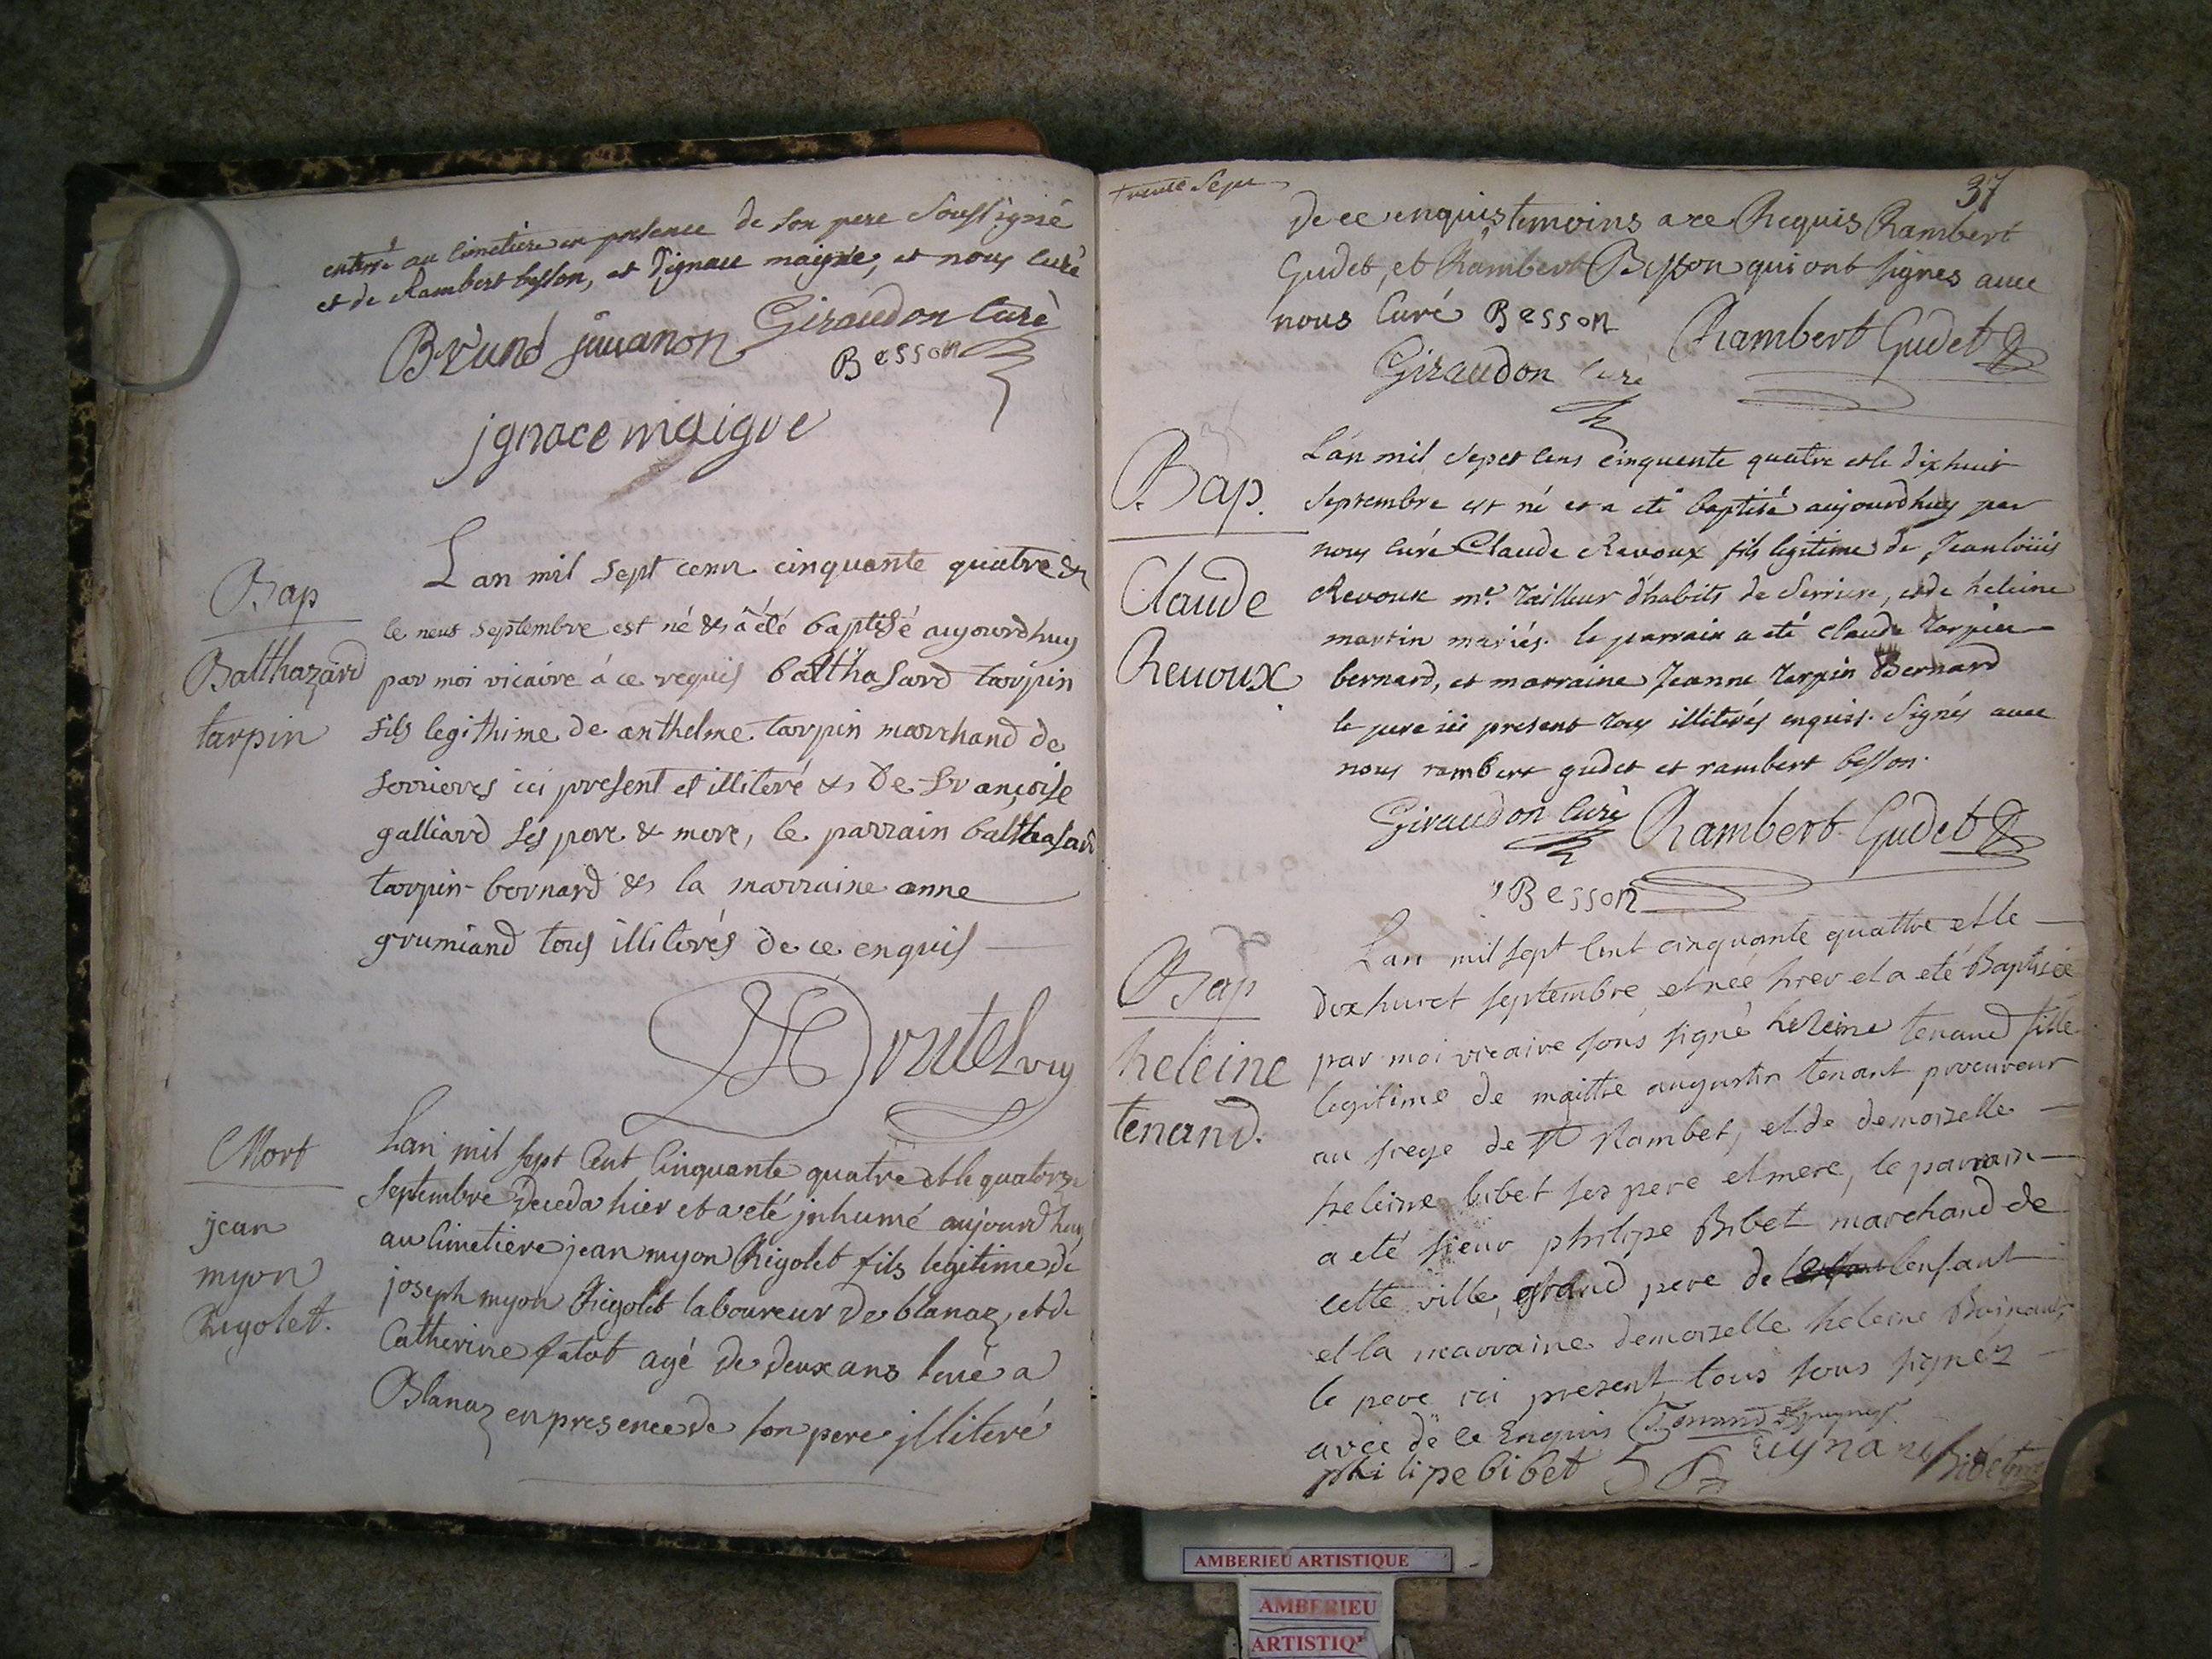 enterré au cimetiere en presence de son pere soussigné
et de Rambert besson, et d'ignace maigre, et nous curé
Giraudon Curé
Bruno juuanon
Besson
jgnace maigre
Bap
Balthazard
tarpin
Lan mil sept cent cinquante quatre &
le neuf septembre est né & á été baptisé aujourdhuy
par moi vicaire á ce requis balthasard tarpin
fils legithime de anthelme tarpin marchand de
serrieres ici present et illiteré & De françoise
galliard ses pere & mere, le parrain balthasard
tarpin-bernard & la marraine anne
grumiand tous illiterés de ce enquis
Mort
jean
myon
Rigolet.
Lan mil sept Cent Cinquante quatre et le quatorze
septembre deceda hier et a eté jnhumé aujourdhuy
au Cimetiere jean myon Rigolet fils legitime de
joseph myon Rigolet laboureur de blanaz, et de
Catherine fatot agé de deux ans tué a
Blanaz en presence de son pere jlliteré
trente sept
37
de ce enquis temoins a ce Requis Rambert
Gudet, et Rambert Besson qui ont signes avec
nous Curé Besson
Rambert Gudet
Giraudon Curé
Bap.
Claude
Reuoux
L'an mil sept cens cinquente quatre et le dixhuit
septembre est né et a eté baptisé aujourdhuy par
nous curé Claude Revoux fils legitime de Jean loüis
Revoux me. tailleur d'habits de Serriere, et de heleine
martin mariés. le parrain a eté claude tarpin
bernard, et marraine Jeanne tarpin Bernard
le pere ici present tous illiterés enquis. Signés avec
nous rambert gudet et rambert besson.
Giraudon Curé Rambert Gudet
Besson
Bap
heleine
tenand.
Lan mil sept Cent cinquante quattre et le
dixhuict septembre et née hier et a eté Baptisée
par moi vicaire sous signé heleine tenand fille
legitime de maittre augustin tenant procureur
au siege de st Rambet, et de demoizelle
heleine bibet ses pere et mere, le parrain
a eté sieur philipe Bibet marchand de
cette ville, grand pere de lenfant
et la marraine demoizelle heleine
le pere ici present tous sous signéz
avec de ce Enquis
philipe bibet
AMBERIEU ARTISTIQUE
AMBERIEU
ARTISTIQ